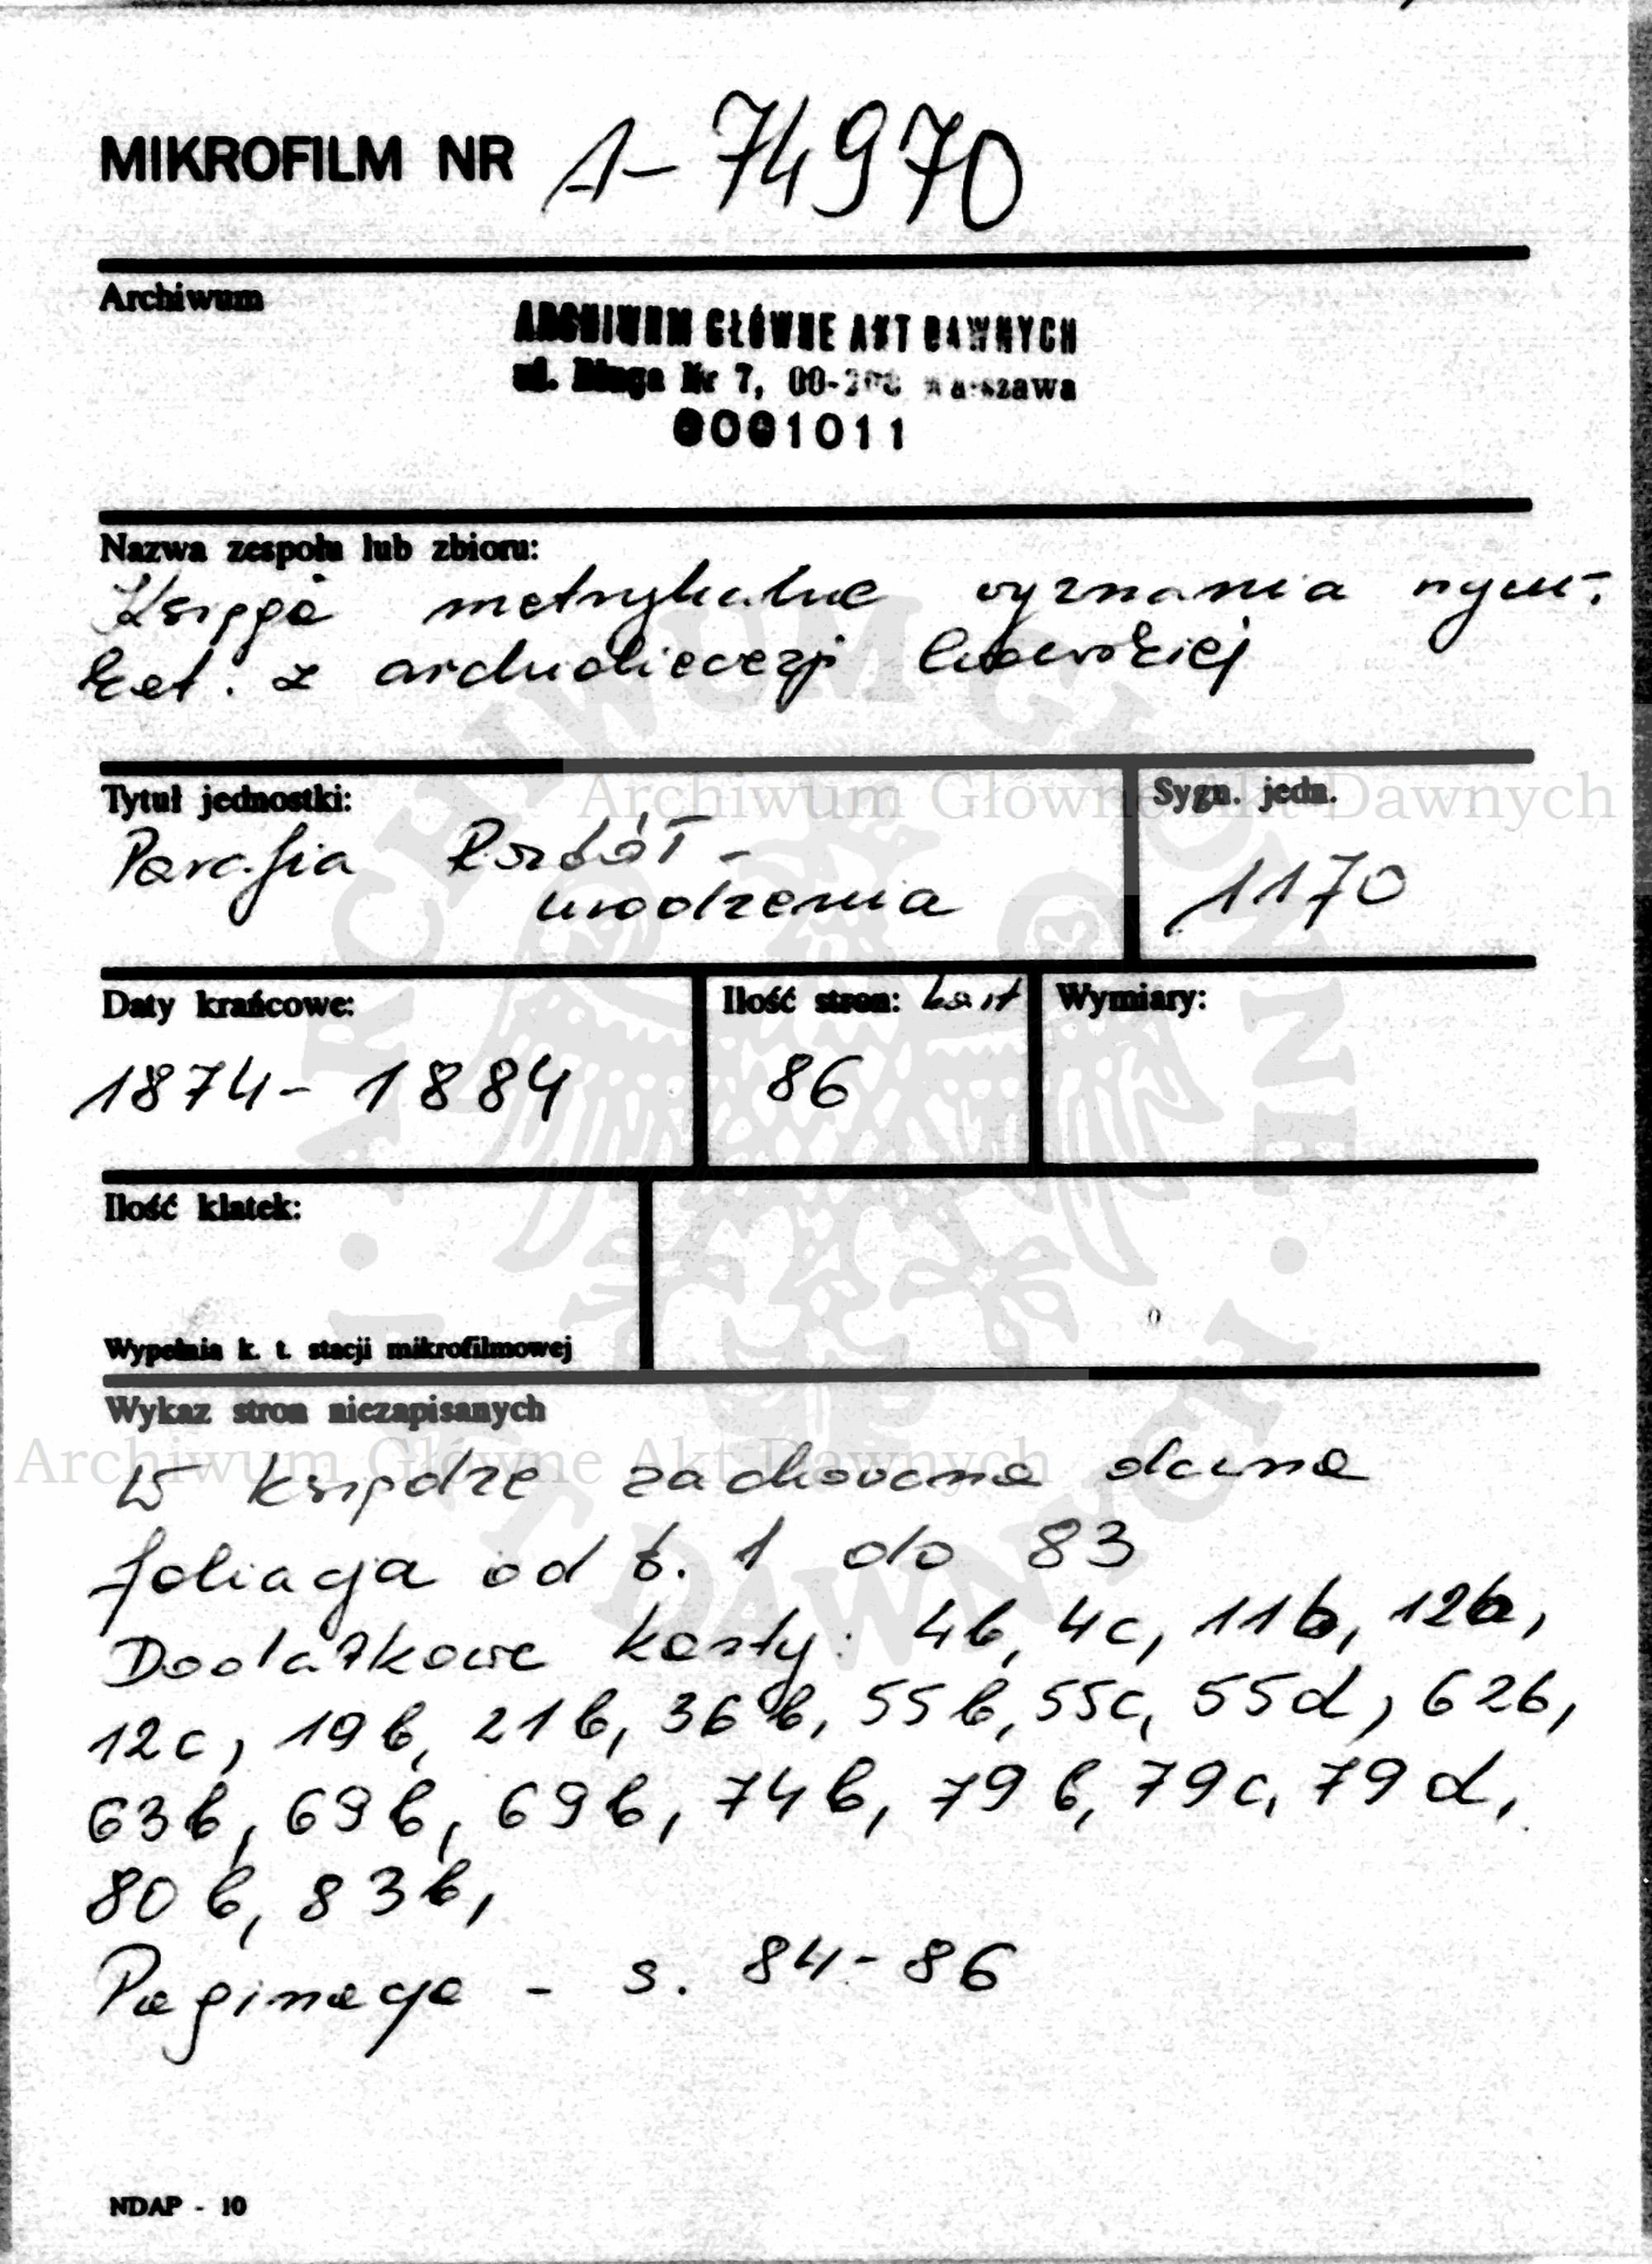 MIKROFILM NR A-74970
Archiwum
ARCHIWUM GŁÓWNE AKT DAWNYCH
ul. Długa Nr 7, 00-208 Warszawa
0001011
Nazwa zespołu lub zbioru:
Księga metrykalne wyznania rzym.-
kat. z archidiecezji lwowskiej
Tytuł jednostki:
Sygn. jedn.
Parafia -
urodzenia
1170
Daty krańcowe:
Ilość stron: kart
Wymiary:
1874- 1884
86
Ilość klatek:
Wypełnia k. t. stacji mikrofilmowej
Wykaz stron niezapisanych
W księdze zachowana dawna
foliacja od k. 1 do 83
Dodatkowe karty: 4b, 4c, 11b, 12b,
12c, 19b, 21b, 36b, 55b, 55c, 55d, 62b,
63b, 69b, 69b, 74b, 79b, 79c, 79d,
80b, 83b,
Paginacja - s. 84-86
NDAP - 10
Archiwum Główne Akt Dawnych
Archiwum Główne Akt Dawnych
ARCHIWUM GŁÓWNE AKT DAWNYCH